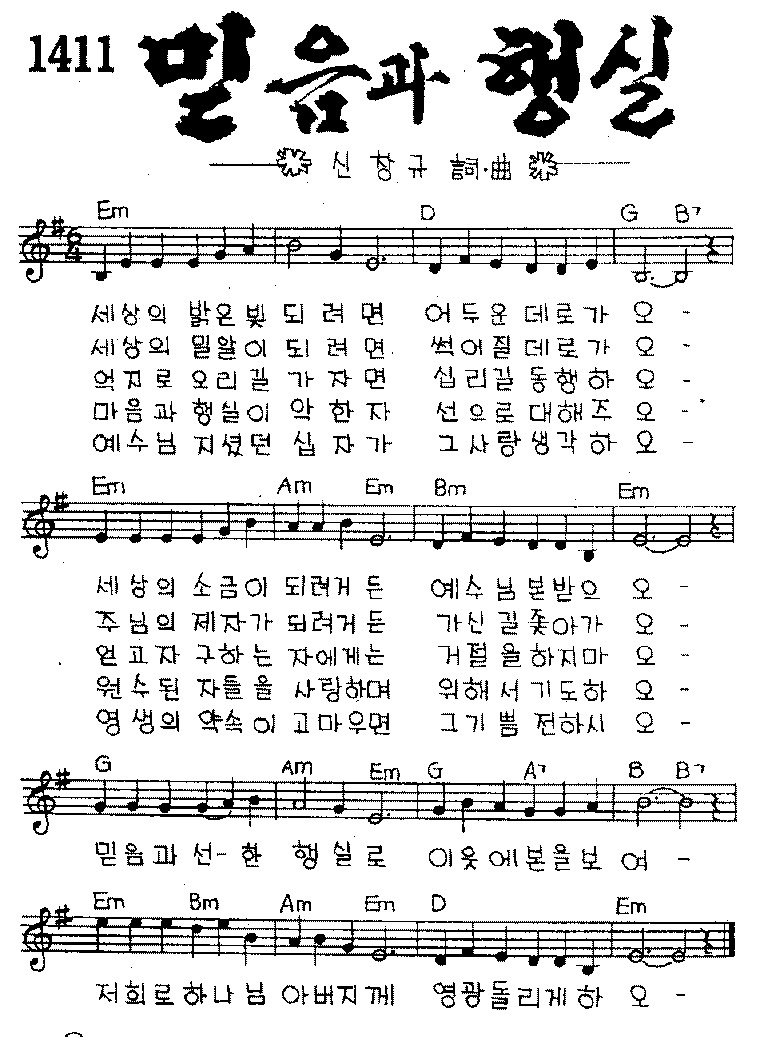 1411 믿음과 행실
신 창 규 詞·曲
Em D G B7
6/4
세상의 밝은빛 되려면 어두운데로가 오 -
세상의 밀알이 되려면 썩어질데로가 오 -
억지로 오리길 가자면 십리길동행하 오 -
마음과 행실이 악한자 선으로대해주 오 -
예수님 지셨던 십자가 그사랑생각하 오 -
Em Am Em Bm Em
세상의 소금이 되려거든 예수님본받으 오 -
주님의 제자가 되려거든 가신길좇아가 오 -
얻고자 구하는 자에게는 거절을하지마 오 -
원수된 자들을 사랑하며 위해서기도하 오 -
영생의 약속이 고마우면 그기쁨전하시 오 -
G Am Em G A7 B B7
믿음과선-한 행실로 이웃에본을보 여 -
Em Bm Am Em D Em
저희로하나님 아버지께 영광돌리게하 오 -